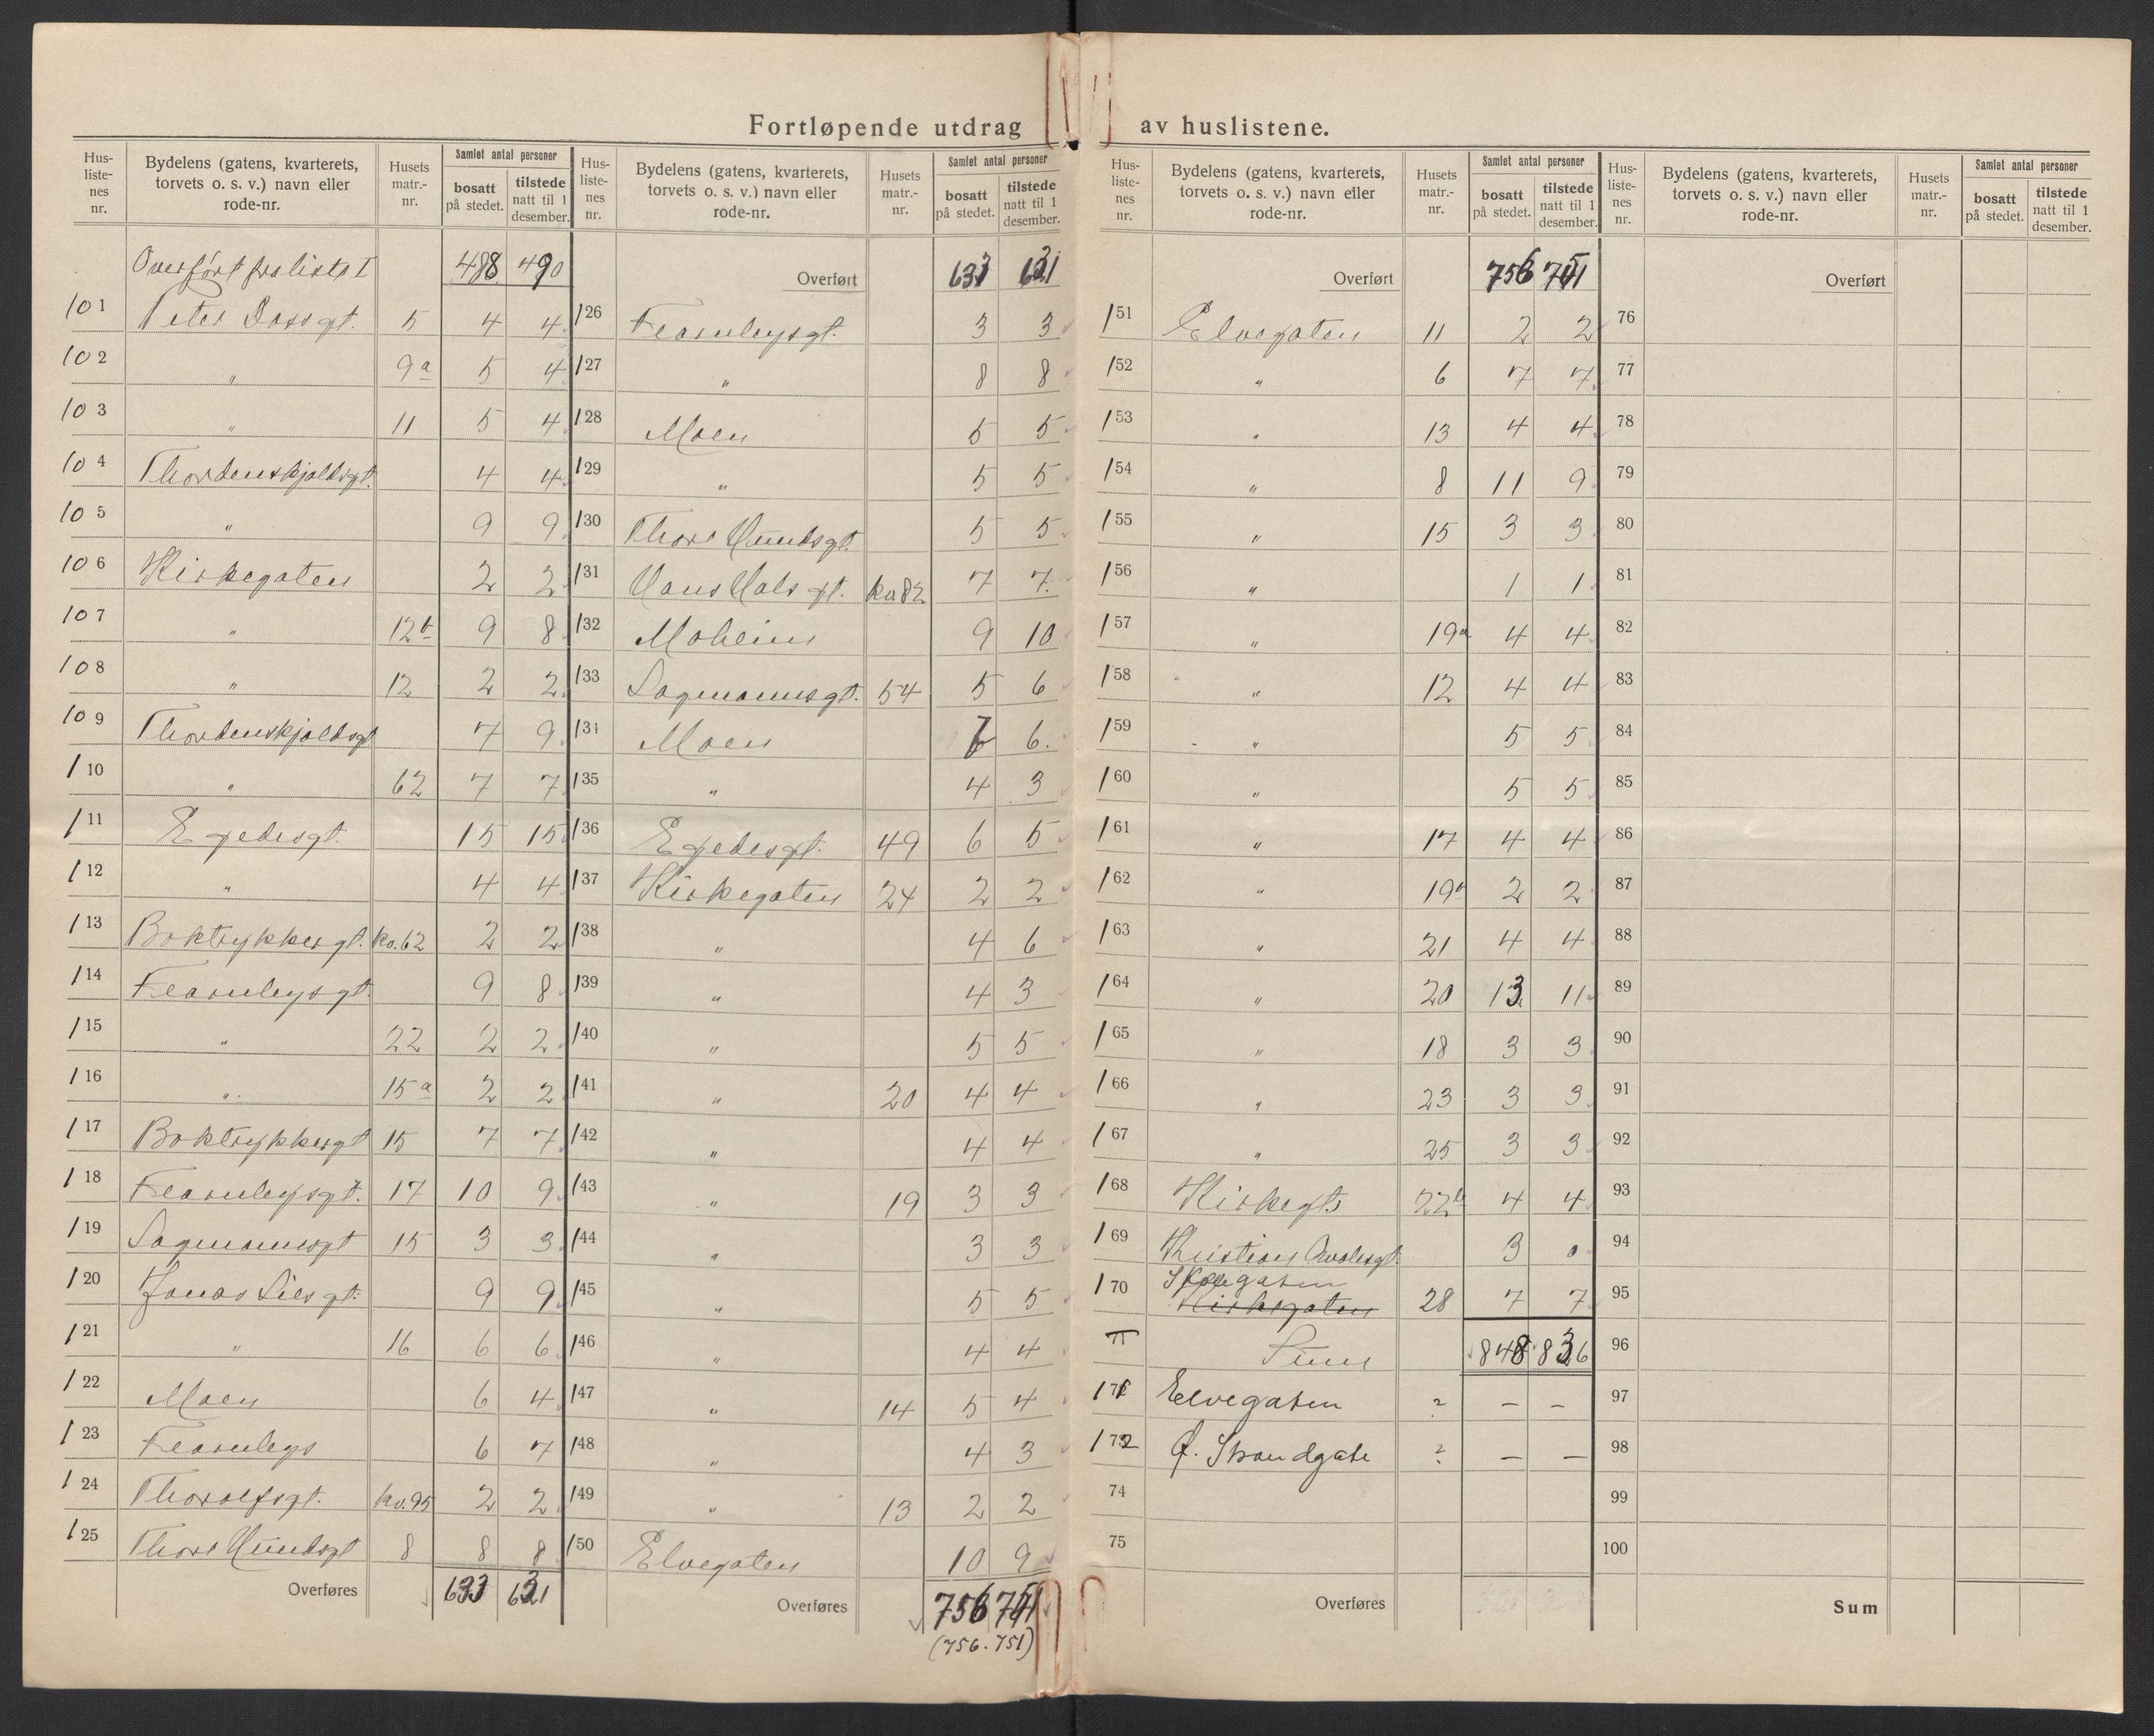 Fortløpende utdrag av huslistene.
Hus-listenes nr. | Bydelens (gatens, kvarterets, torvets o. s. v.) navn eller rode-nr. | Husets matr.-nr. | Samlet antal personer | bosatt på stedet. | tilstede natt til 1 desember.
Overført fra liste I 488 490
101 Peter Dassgt. 5 4 4
102 " 9a 5 4
103 " 11 5 4
104 Thordenskjoldsgt. 4 4
105 " 9 9
106 Kirkegaten 2 2
107 " 12b 9 8
108 " 12 2 2
109 Thordenskjoldsgt 7 9
110 " 62 7 7
111 Egedesgt. 15 15
112 " 4 4
113 Boktrykkergt. kv.62 2 2
114 Fearnleysgt. 9 8
115 " 22 2 2
116 " 15a 2 2
117 Boktrykkergt 15 7 7
118 Fearnleysgt. 17 10 9
119 Sagmannsgt 15 3 3
120 Jonas Liesgt. 9 9
121 " 16 6 6
122 Moen 6 4
123 Fearnleys 6 7
124 Thorolfsgt. kv.95 2 2
125 Thore Hundsgt 8 8 8
Overføres 633 631
Hus-listenes nr. | Bydelens (gatens, kvarterets, torvets o. s. v.) navn eller rode-nr. | Husets matr.-nr. | Samlet antal personer | bosatt på stedet. | tilstede natt til 1 desember.
Overført 633 631
126 Fearnleysgt. 3 3
127 " 8 8
128 Moen 5 5
129 " 5 5
130 Thore Hundsgt. 5 5
131 Hans Hals gt. kv.82 7 7
132 Moheim 9 10
133 Sagmannsgt. 54 5 6
134 Moen 6 6
135 " 4 3
136 Egedesgt. 49 6 5
137 Kirkegaten 24 2 2
138 " 4 6
139 " 4 3
140 " 5 5
141 " 20 4 4
142 " 4 4
143 " 19 3 3
144 " 3 3
145 " 5 5
146 " 4 4
147 " 14 5 4
148 " 4 3
149 " 13 2 2
150 Elvegaten 10 9
Overføres 756 751
(756. 751)
Hus-listenes nr. | Bydelens (gatens, kvarterets, torvets o. s. v.) navn eller rode-nr. | Husets matr.-nr. | Samlet antal personer | bosatt på stedet. | tilstede natt til 1 desember.
Overført 756 751
151 Elvegaten 11 2 2
152 " 6 7 7
153 " 13 4 4
154 " 8 11 9
155 " 15 3 3
156 " 1 1
157 " 19a 4 4
158 " 12 4 4
159 " 5 5
160 " 5 5
161 " 17 4 4
162 " 19b 2 2
163 " 21 4 4
164 " 20 13 11
165 " 18 3 3
166 " 23 3 3
167 " 25 3 3
168 Kirkegt. 22b 4 4
169 3 0
170 Skolegaten Kirkegaten 28 7 7
71 Sum 848 836
171 Elvegaten ? – –
172 Ø. Strandgate ? – –
74
75
Overføres
Hus-listenes nr. | Bydelens (gatens, kvarterets, torvets o. s. v.) navn eller rode-nr. | Husets matr.-nr. | Samlet antal personer | bosatt på stedet. | tilstede natt til 1 desember.
Overført
76
77
78
79
80
81
82
83
84
85
86
87
88
89
90
91
92
93
94
95
96
97
98
99
100
Sum